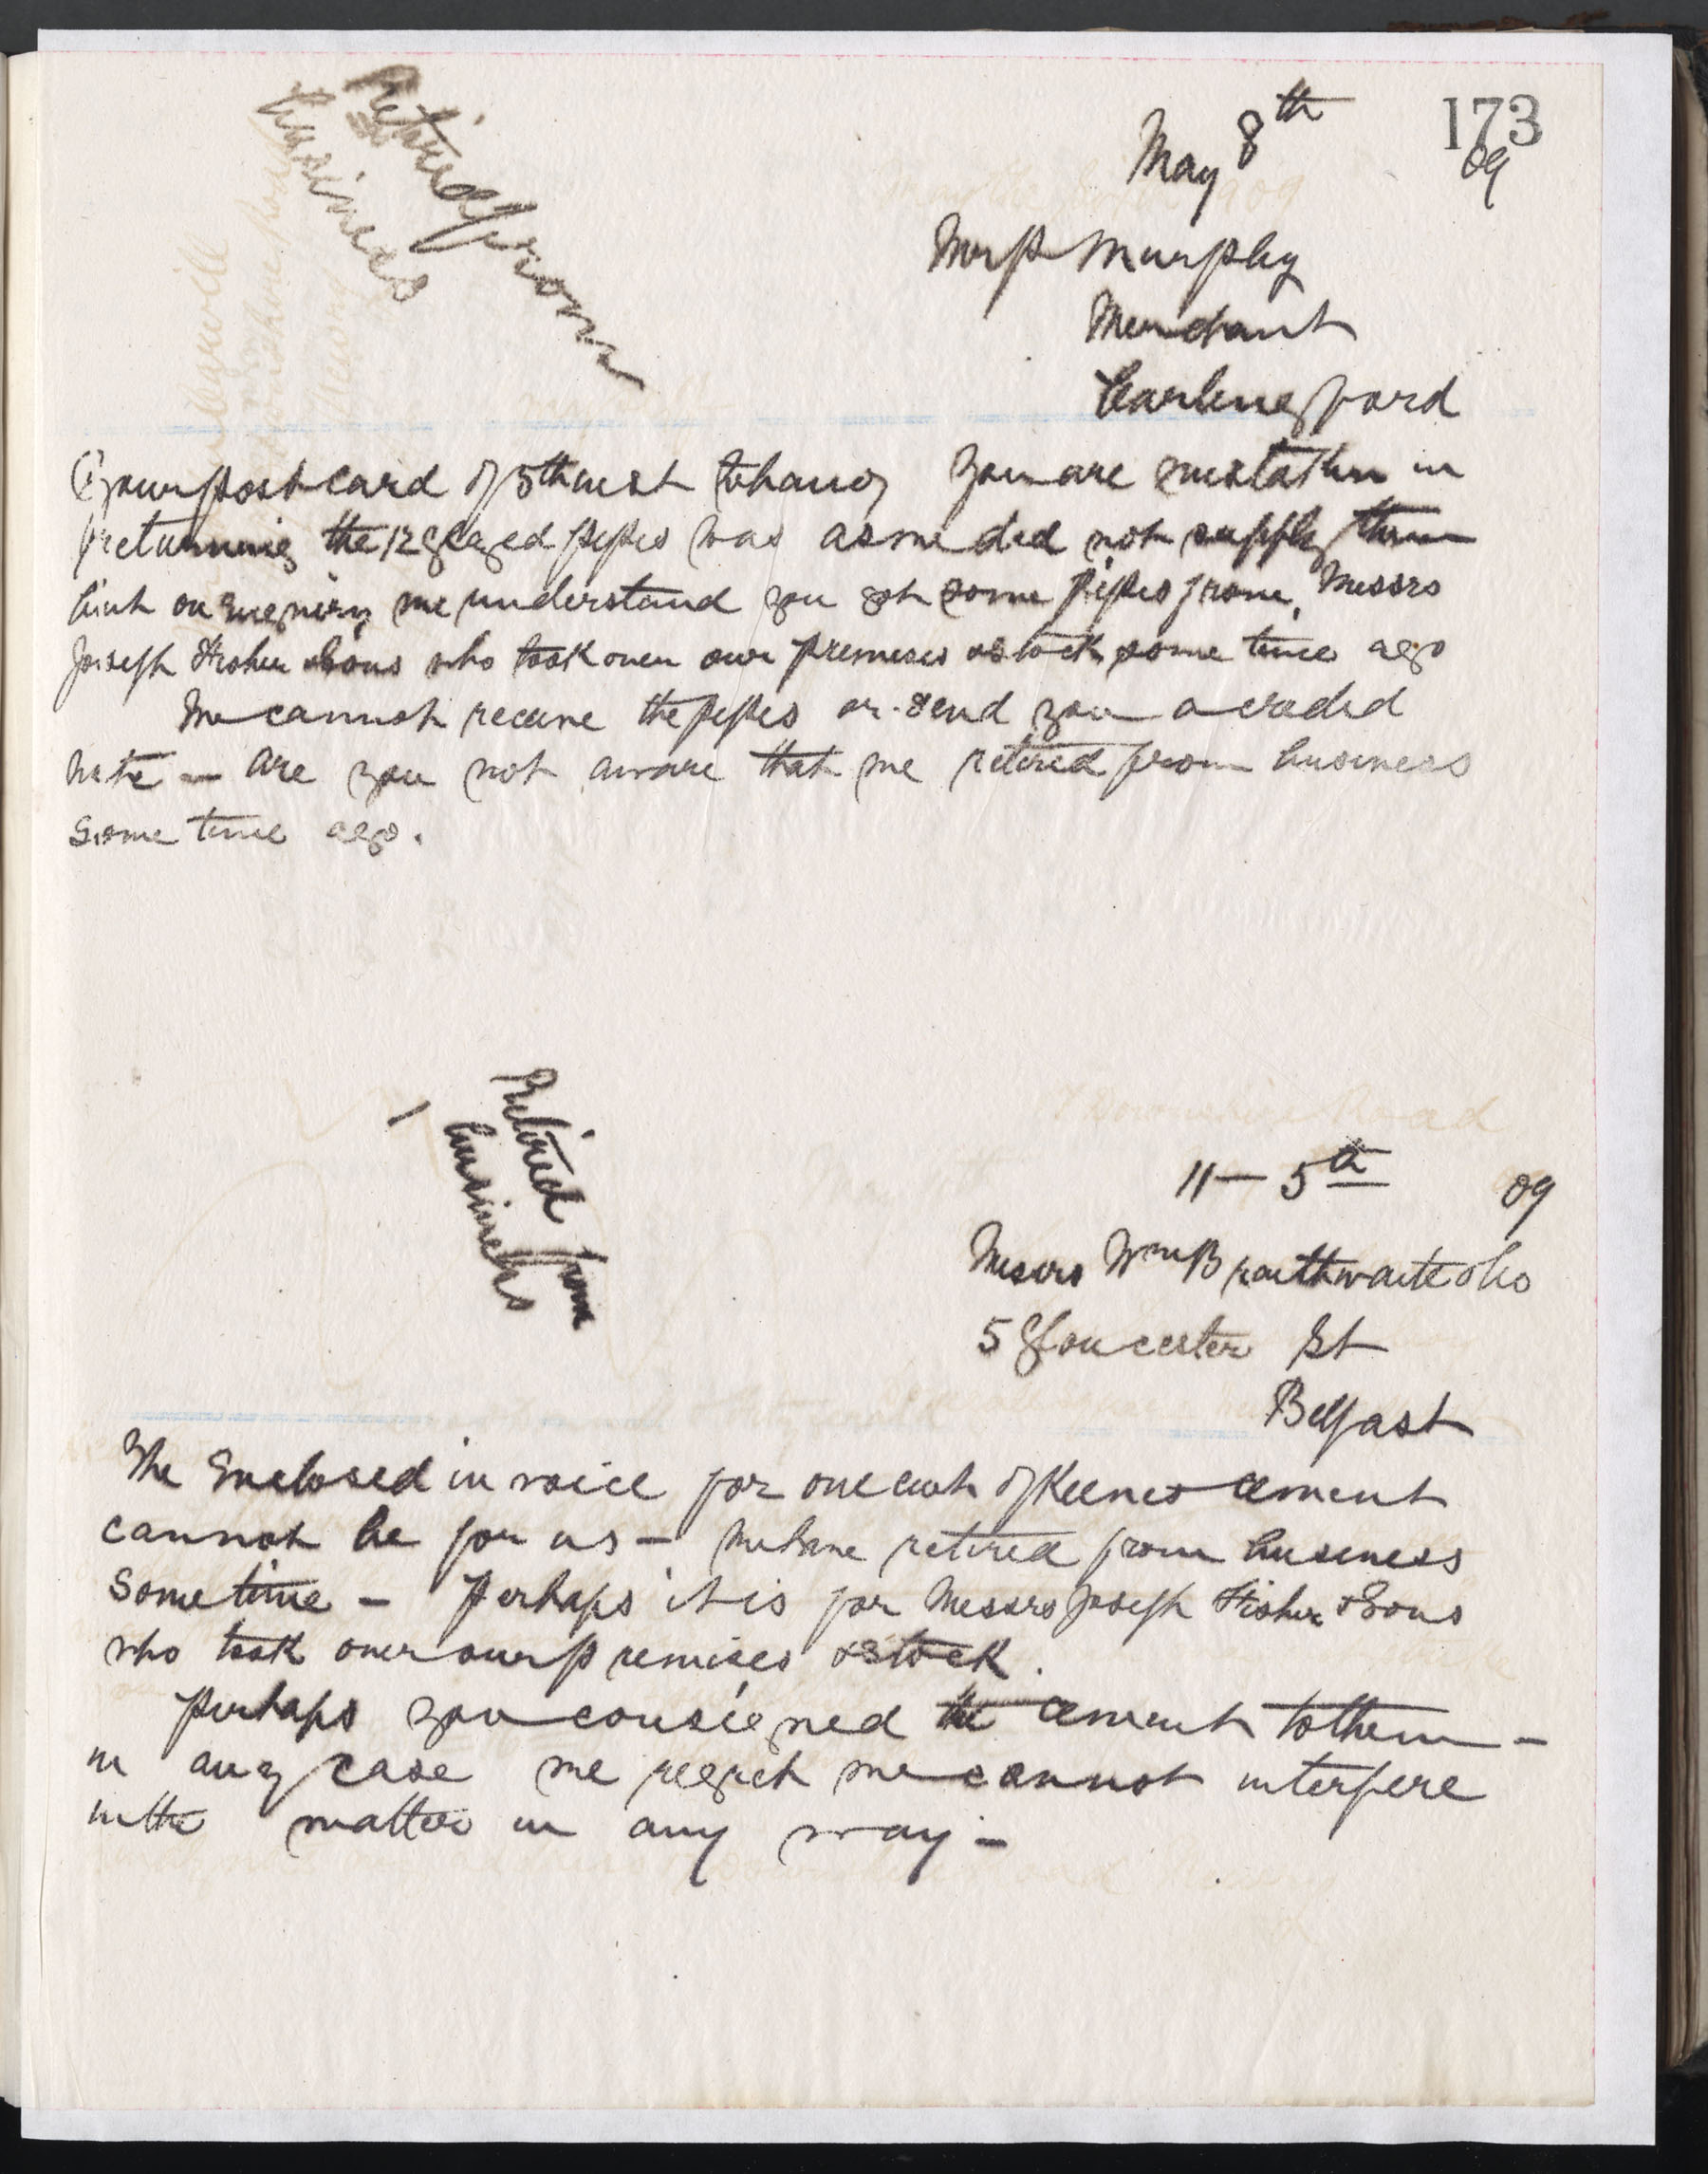 173
May 8th 09
Retired from
business
Mr P Murphy
Merchant
Carlingford
Your post card of 5th inst to hand you are mistaken in
returning the 12 glazed pipes was as we did not supply them
but on enquiry we understand you got some pipes from Messrs
Joseph Fisher & Sons who took over our premises & stock some time ago
We cannot receive the pipes or send you a credit
note – are you not aware that we retired from business
some time ago.
Retired from
business
11 – 5th 09
Messrs Wm Braithwaite & Co
5 Gloucester St
Belfast
The Enclosed invoice for one cwt of Keenes cement
cannot be for us – We have retired from business
sometime – Perhaps it is for Messrs Joseph Fisher & Sons
who took over our premises & stock.
Perhaps you consigned the cement to them –
in any case we regret we cannot interfere
in the matter in any way –